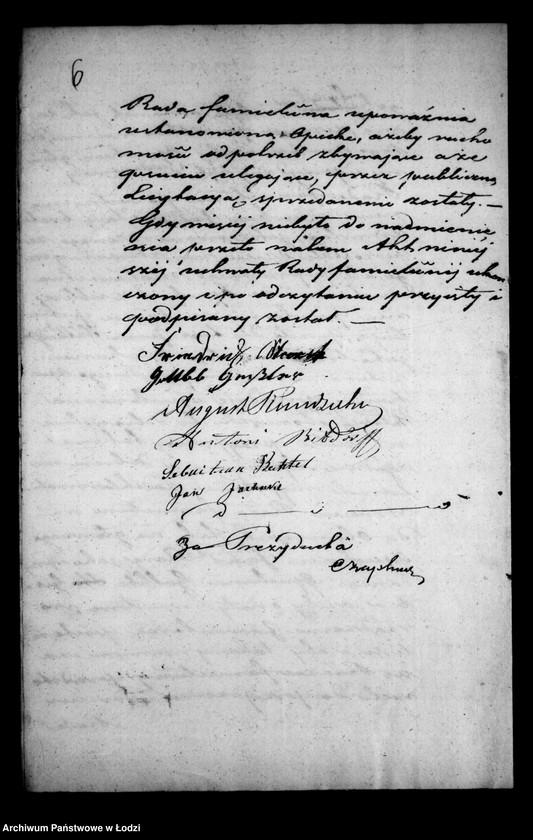 6
Rada familijna upoważnia
ustanowioną Opiekę, ażeby rucho
mości od potrzeb zbywające a ze
psuciu ulegające, przez publiczną
Licytacją sprzedanemi zostały. —
Gdy więcej niebyło do nadmienie
nia przeto na tem Akt niniej
szej uchwały Rady familijnej ukoń
czony i po odczytaniu przyjęty i
podpisany został. —
Friedrich
Gottlieb
August
Antoni Bittdorff
Sebastian
Jan
Za Prezydenta